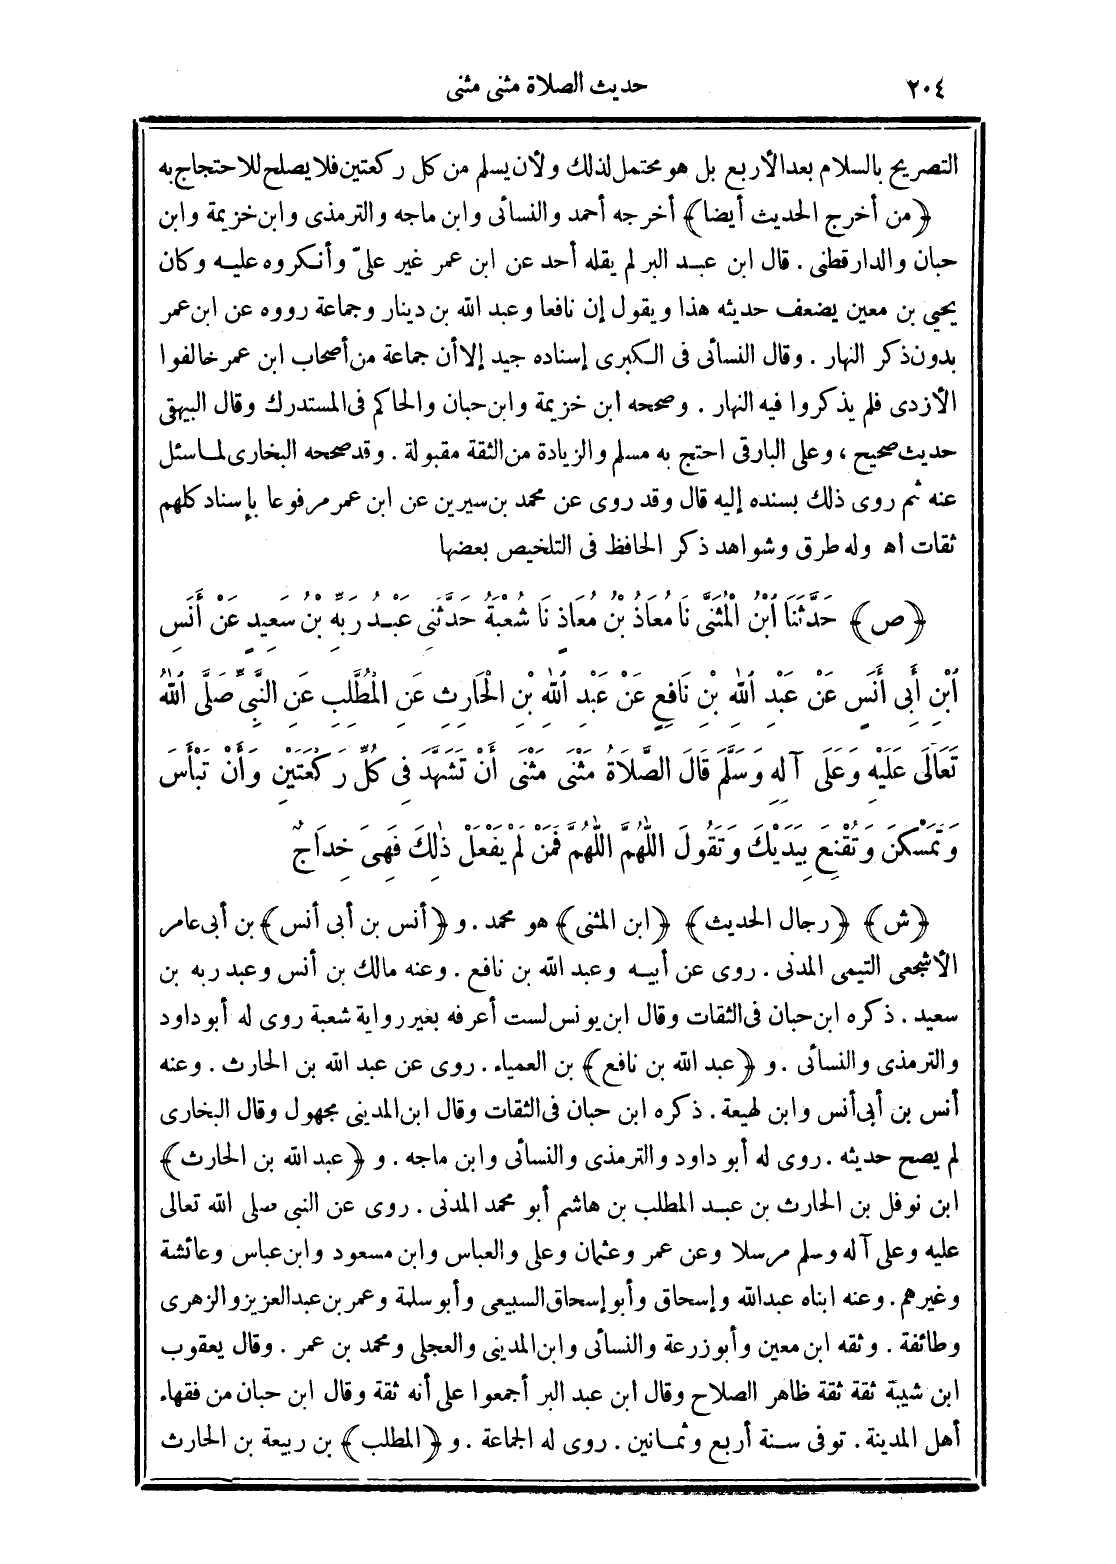 ٢٠٤ حديث الصلاة مثنى مثنى
التصريح بالسلام بعد الأربع بل هو محتمل لذلك ولأن يسلم من كل ركعتين فلا يصلح للاحتجاج به
﴿من أخرج الحديث أيضا﴾ أخرجه أحمد والنسائى وابن ماجه والترمذى وابن خزيمة وابن
حبان والدارقطنى . قال ابن عبد البر لم يقله أحد عن ابن عمر غير علىّ وأنكروه عليه وكان
يحيى بن معين يضعف حديثه هذا ويقول إن نافعا وعبد الله بن دينار وجماعة رووه عن ابن عمر
بدون ذكر النهار . وقال النسائى فى الكبرى إسناده جيد إلا أن جماعة من أصحاب ابن عمر خالفوا
الأزدى فلم يذكروا فيه النهار . وصححه ابن خزيمة وابن حبان والحاكم فى المستدرك وقال البيهقى
حديث صحيح ، وعلى البارقى احتج به مسلم والزيادة من الثقة مقبولة . وقد صححه البخارى لما سئل
عنه ثم روى ذلك بسنده إليه قال وقد روى عن محمد بن سيرين عن ابن عمر مرفوعا بإسناد كلهم
ثقات اه وله طرق وشواهد ذكر الحافظ فى التلخيص بعضها
﴿ص﴾ حَدَّثَنَا ابْنُ الْمُثَنَّى نَا مُعَاذُ بْنُ مُعَاذٍ نَا شُعْبَةُ حَدَّثَنِى عَبْدُ رَبِّهِ بْنُ سَعِيدٍ عَنْ أَنَسِ
ابْنِ أَبِى أَنَسٍ عَنْ عَبْدِ اللهِ بْنِ نَافِعٍ عَنْ عَبْدِ اللهِ بْنِ الْحَارِثِ عَنِ الْمُطَّلِبِ عَنِ النَّبِىِّ صَلَّى اللهُ
تَعَالَى عَلَيْهِ وَعَلَى آلِهِ وَسَلَّمَ قَالَ الصَّلَاةُ مَثْنَى مَثْنَى أَنْ تَشَهَّدَ فِى كُلِّ رَكْعَتَيْنِ وَأَنْ تَبْأَسَ
وَتَمَسْكَنَ وَتُقْنِعَ بِيَدَيْكَ وَتَقُولَ اللّٰهُمَّ اللّٰهُمَّ فَمَنْ لَمْ يَفْعَلْ ذٰلِكَ فَهِىَ خِدَاجٌ
﴿ش﴾ ﴿رجال الحديث﴾ ﴿ابن المثنى﴾ هو محمد . و ﴿أنس بن أبى أنس﴾ بن أبى عامر
الأشجعى التيمى المدنى . روى عن أبيه وعبد الله بن نافع . وعنه مالك بن أنس وعبد ربه بن
سعيد . ذكره ابن حبان فى الثقات وقال ابن يونس لست أعرفه بغير رواية شعبة روى له أبو داود
والترمذى والنسائى . و ﴿عبد الله بن نافع﴾ بن العمياء . روى عن عبد الله بن الحارث . وعنه
أنس بن أبى أنس وابن لهيعة . ذكره ابن حبان فى الثقات وقال ابن المدينى مجهول وقال البخارى
لم يصح حديثه . روى له أبو داود والترمذى والنسائى وابن ماجه . و ﴿عبد الله بن الحارث﴾
ابن نوفل بن الحارث بن عبد المطلب بن هاشم أبو محمد المدنى . روى عن النبى صلى الله تعالى
عليه وعلى آله وسلم مرسلا وعن عمر وعثمان وعلى والعباس وابن مسعود وابن عباس وعائشة
وغيرهم . وعنه ابناه عبدالله وإسحاق وأبو إسحاق السبيعى وأبو سلمة وعمر بن عبدالعزيز والزهرى
وطائفة . وثقه ابن معين وأبو زرعة والنسائى وابن المدينى والعجلى ومحمد بن عمر . وقال يعقوب
ابن شيبة ثقة ثقة ظاهر الصلاح وقال ابن عبد البر أجمعوا على أنه ثقة وقال ابن حبان من فقهاء
أهل المدينة . توفى سنة أربع وثمانين . روى له الجماعة . و ﴿المطلب﴾ بن ربيعة بن الحارث